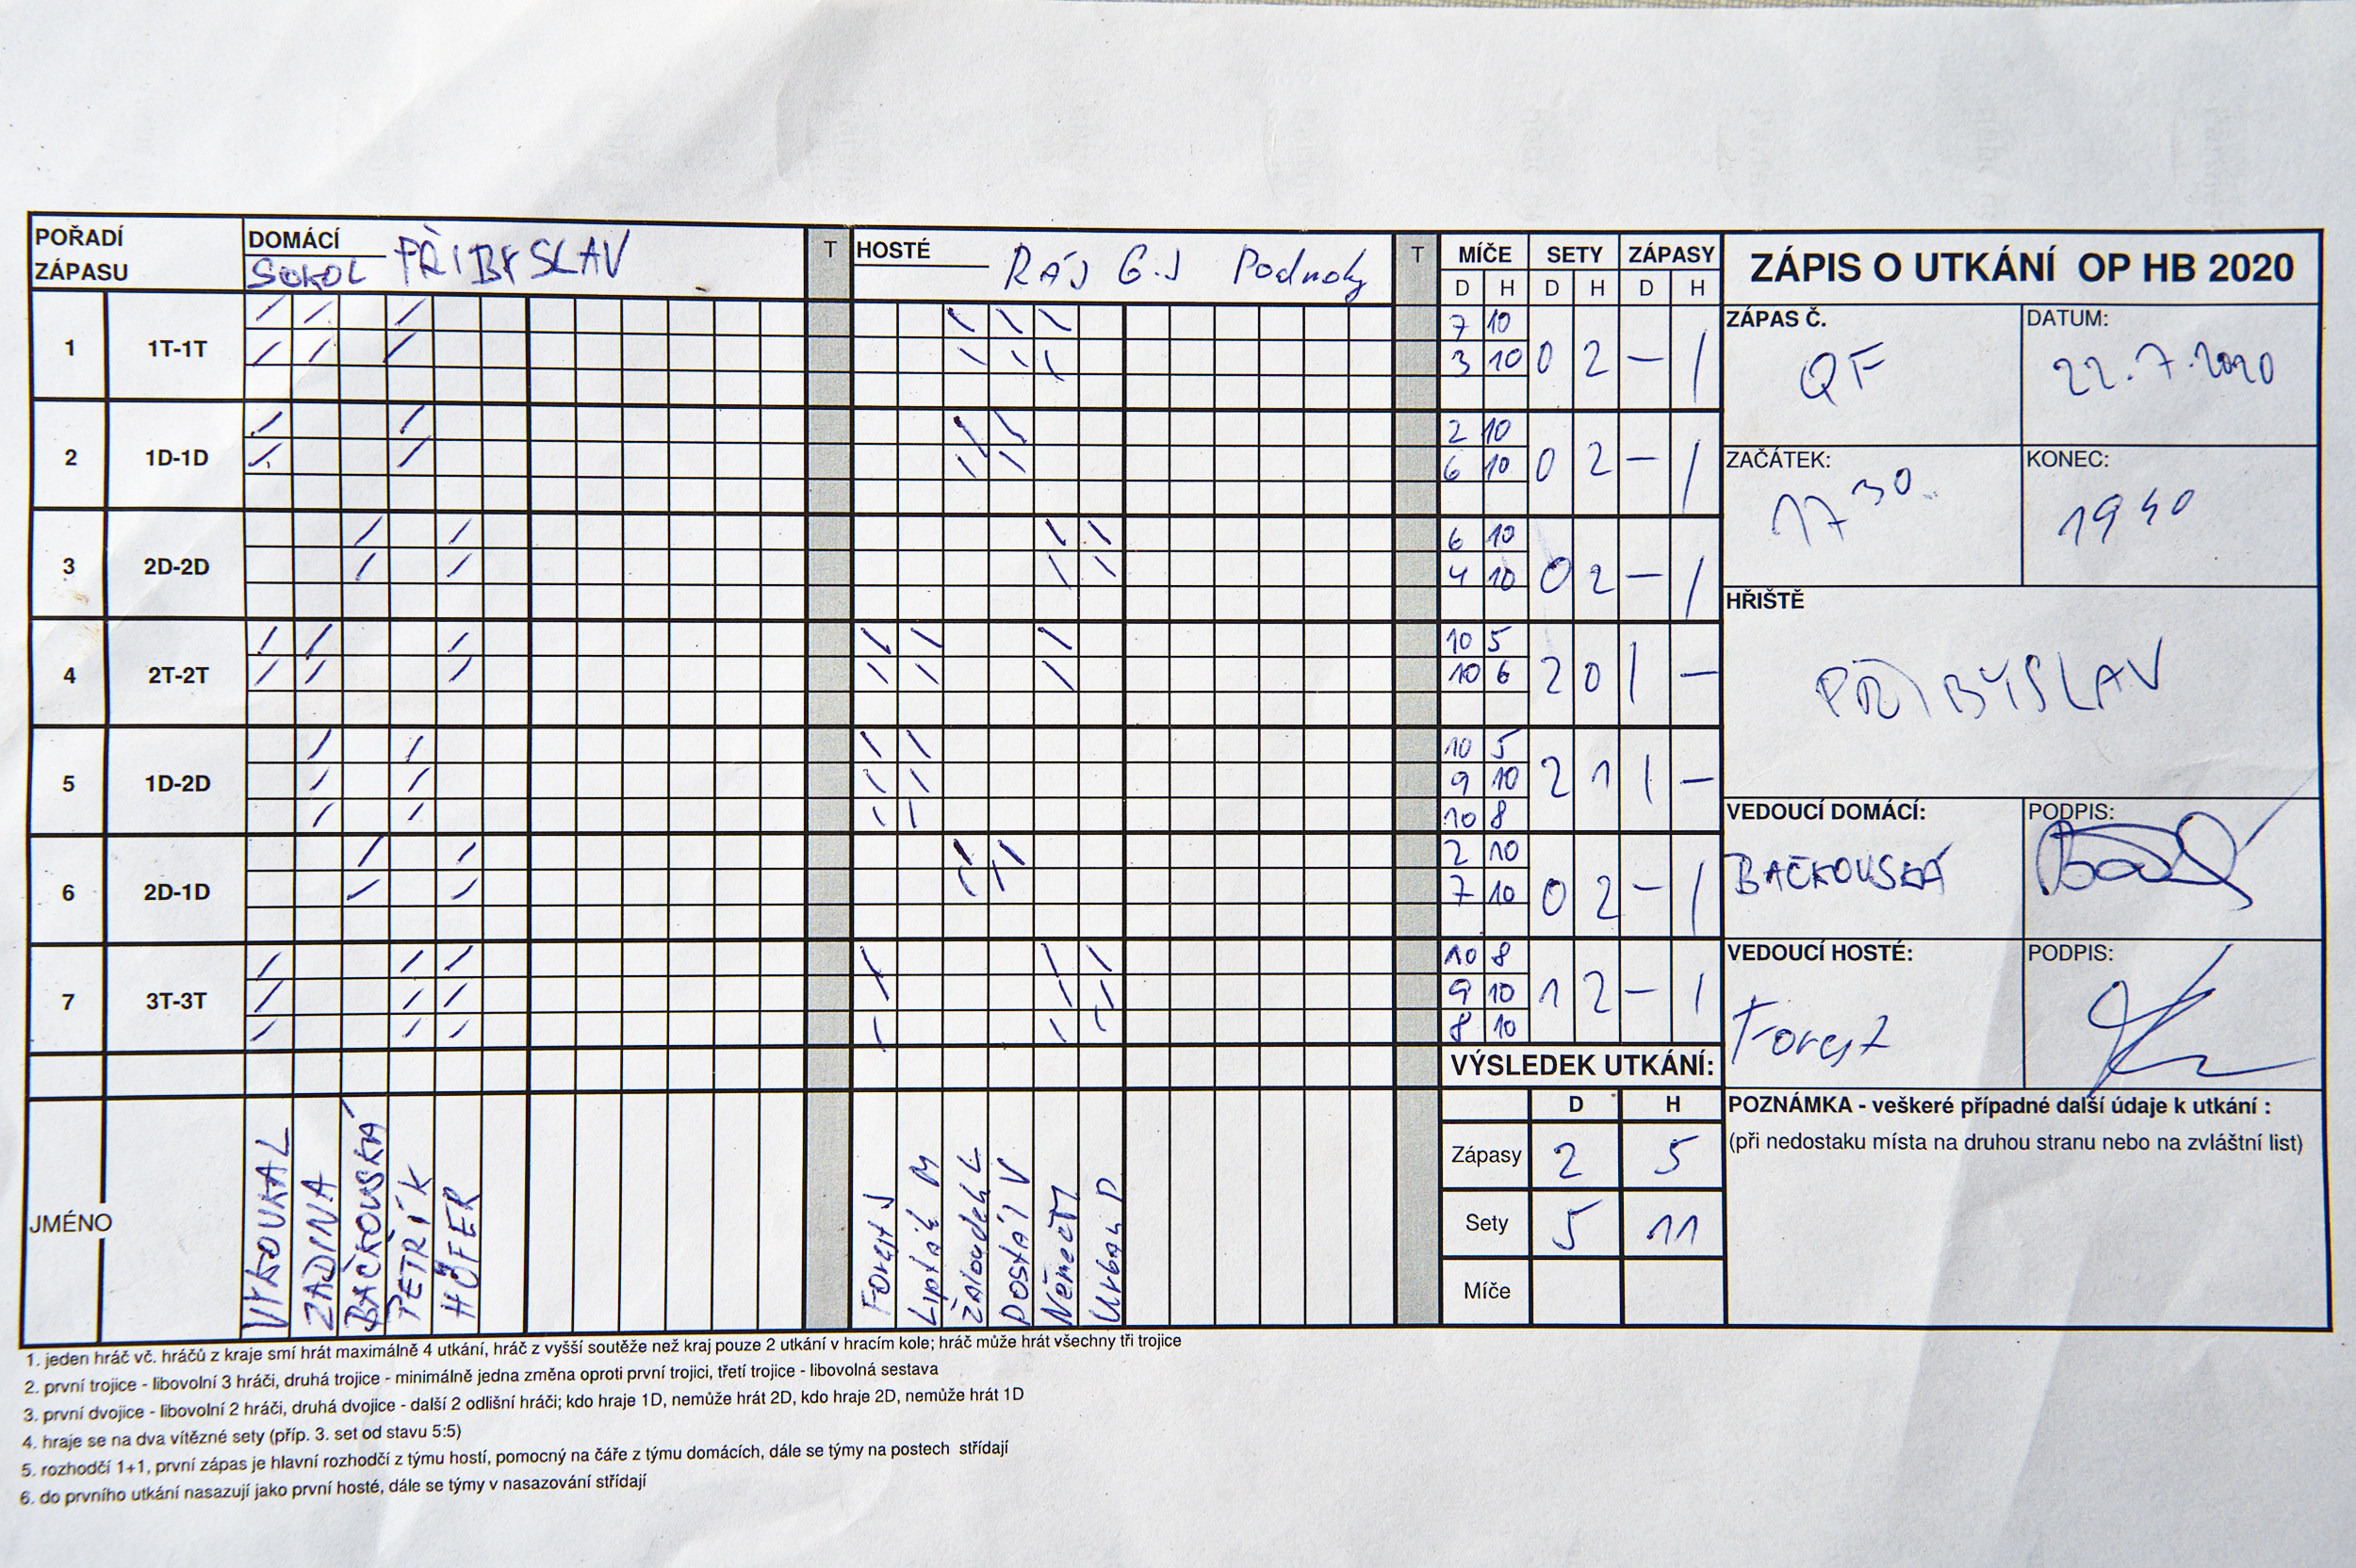 POŘADÍ ZÁPASU DOMÁCÍ SOKOL PŘIBYSLAV T HOSTÉ RÁJ G.J Podmoky T MÍČE SETY ZÁPASY
D H D H D H
1 1T-1T 7 10 0 2 – 1
3 10
2 1D-1D 2 10 0 2 – 1
6 10
3 2D-2D 6 10 0 2 – 1
4 10
4 2T-2T 10 5 2 0 1 –
10 6
5 1D-2D 10 5 2 1 1 –
9 10
10 8
6 2D-1D 2 10 0 2 – 1
7 10
7 3T-3T 10 8 1 2 – 1
9 10
8 10
JMÉNO
VYKOUKAL
ZADINA
BAČKOVSKÁ
PETŘÍK
HÖFER
Forest J
Lipták M
Žaloudek L
Dostál V
Němec M
Urban P
VÝSLEDEK UTKÁNÍ:
D H
Zápasy 2 5
Sety 5 11
Míče
ZÁPIS O UTKÁNÍ OP HB 2020
ZÁPAS Č. DATUM:
QF 22.7.2020
ZAČÁTEK: KONEC:
17 30 19 40
HŘIŠTĚ
PŘIBYSLAV
VEDOUCÍ DOMÁCÍ: PODPIS:
BAČKOVSKÁ
VEDOUCÍ HOSTÉ: PODPIS:
Forest
POZNÁMKA - veškeré případné další údaje k utkání :
(při nedostaku místa na druhou stranu nebo na zvláštní list)
1. jeden hráč vč. hráčů z kraje smí hrát maximálně 4 utkání, hráč z vyšší soutěže než kraj pouze 2 utkání v hracím kole; hráč může hrát všechny tři trojice
2. první trojice - libovolní 3 hráči, druhá trojice - minimálně jedna změna oproti první trojici, třetí trojice - libovolná sestava
3. první dvojice - libovolní 2 hráči, druhá dvojice - další 2 odlišní hráči; kdo hraje 1D, nemůže hrát 2D, kdo hraje 2D, nemůže hrát 1D
4. hraje se na dva vítězné sety (příp. 3. set od stavu 5:5)
5. rozhodčí 1+1, první zápas je hlavní rozhodčí z týmu hostí, pomocný na čáře z týmu domácích, dále se týmy na postech střídají
6. do prvního utkání nasazují jako první hosté, dále se týmy v nasazování střídají